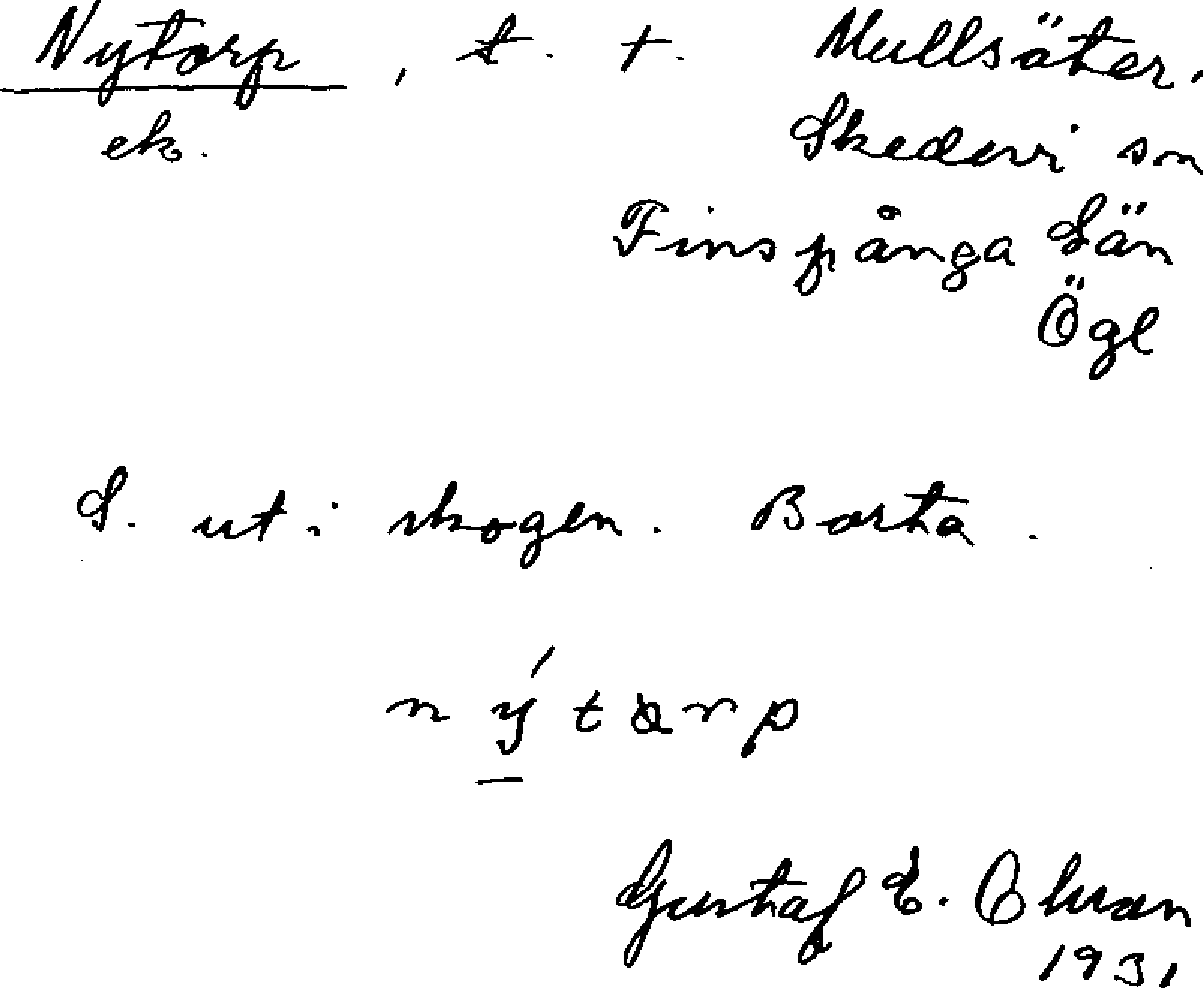 Nytorp, t. t. Mullsäter.
ek. Skedevi sn
Finspånga Län
Ögl
S. ut i skogen. Borta.
nýtarp
Gustaf E. Olsson
1931